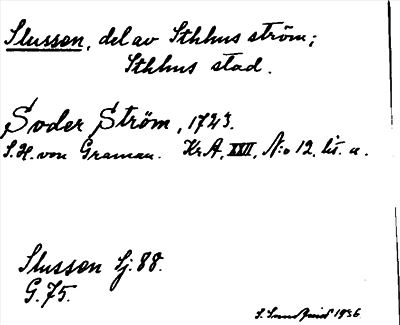 Slussen, del av Sthlms ström;
Sthlms stad.
Söder Ström, 1723.
S.H. von Graman. Kr.A, XXII, N:o 12. lit. a.
Slussen Sj. 88.
G. 75.
S. 1936